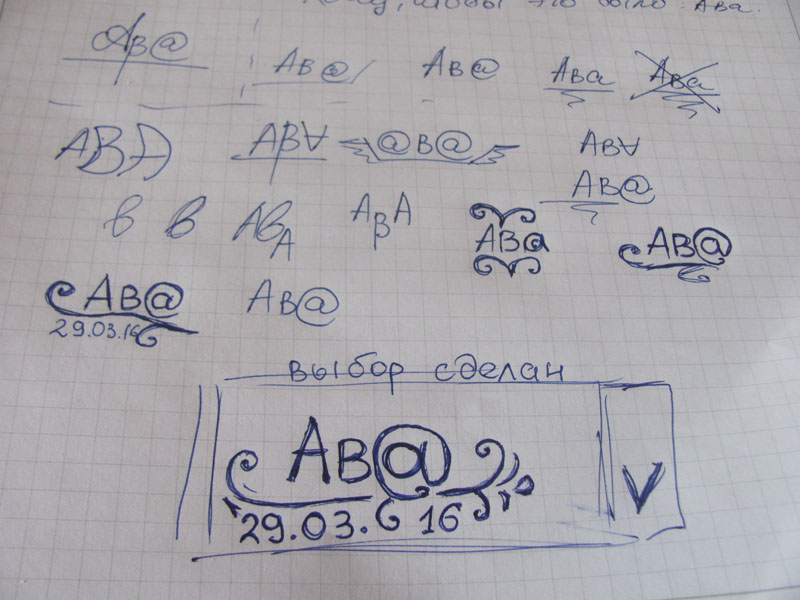 чтобы это было Ава.
Ав@ Ав@ Ав@ Ава Ава
АВА АВ∀ @В@ АВ∀
Ав@
в в АВА АВА АВ@ АВ@
Ав@ Ав@
29.03.16
выбор сделан
Ав@
29.03.16